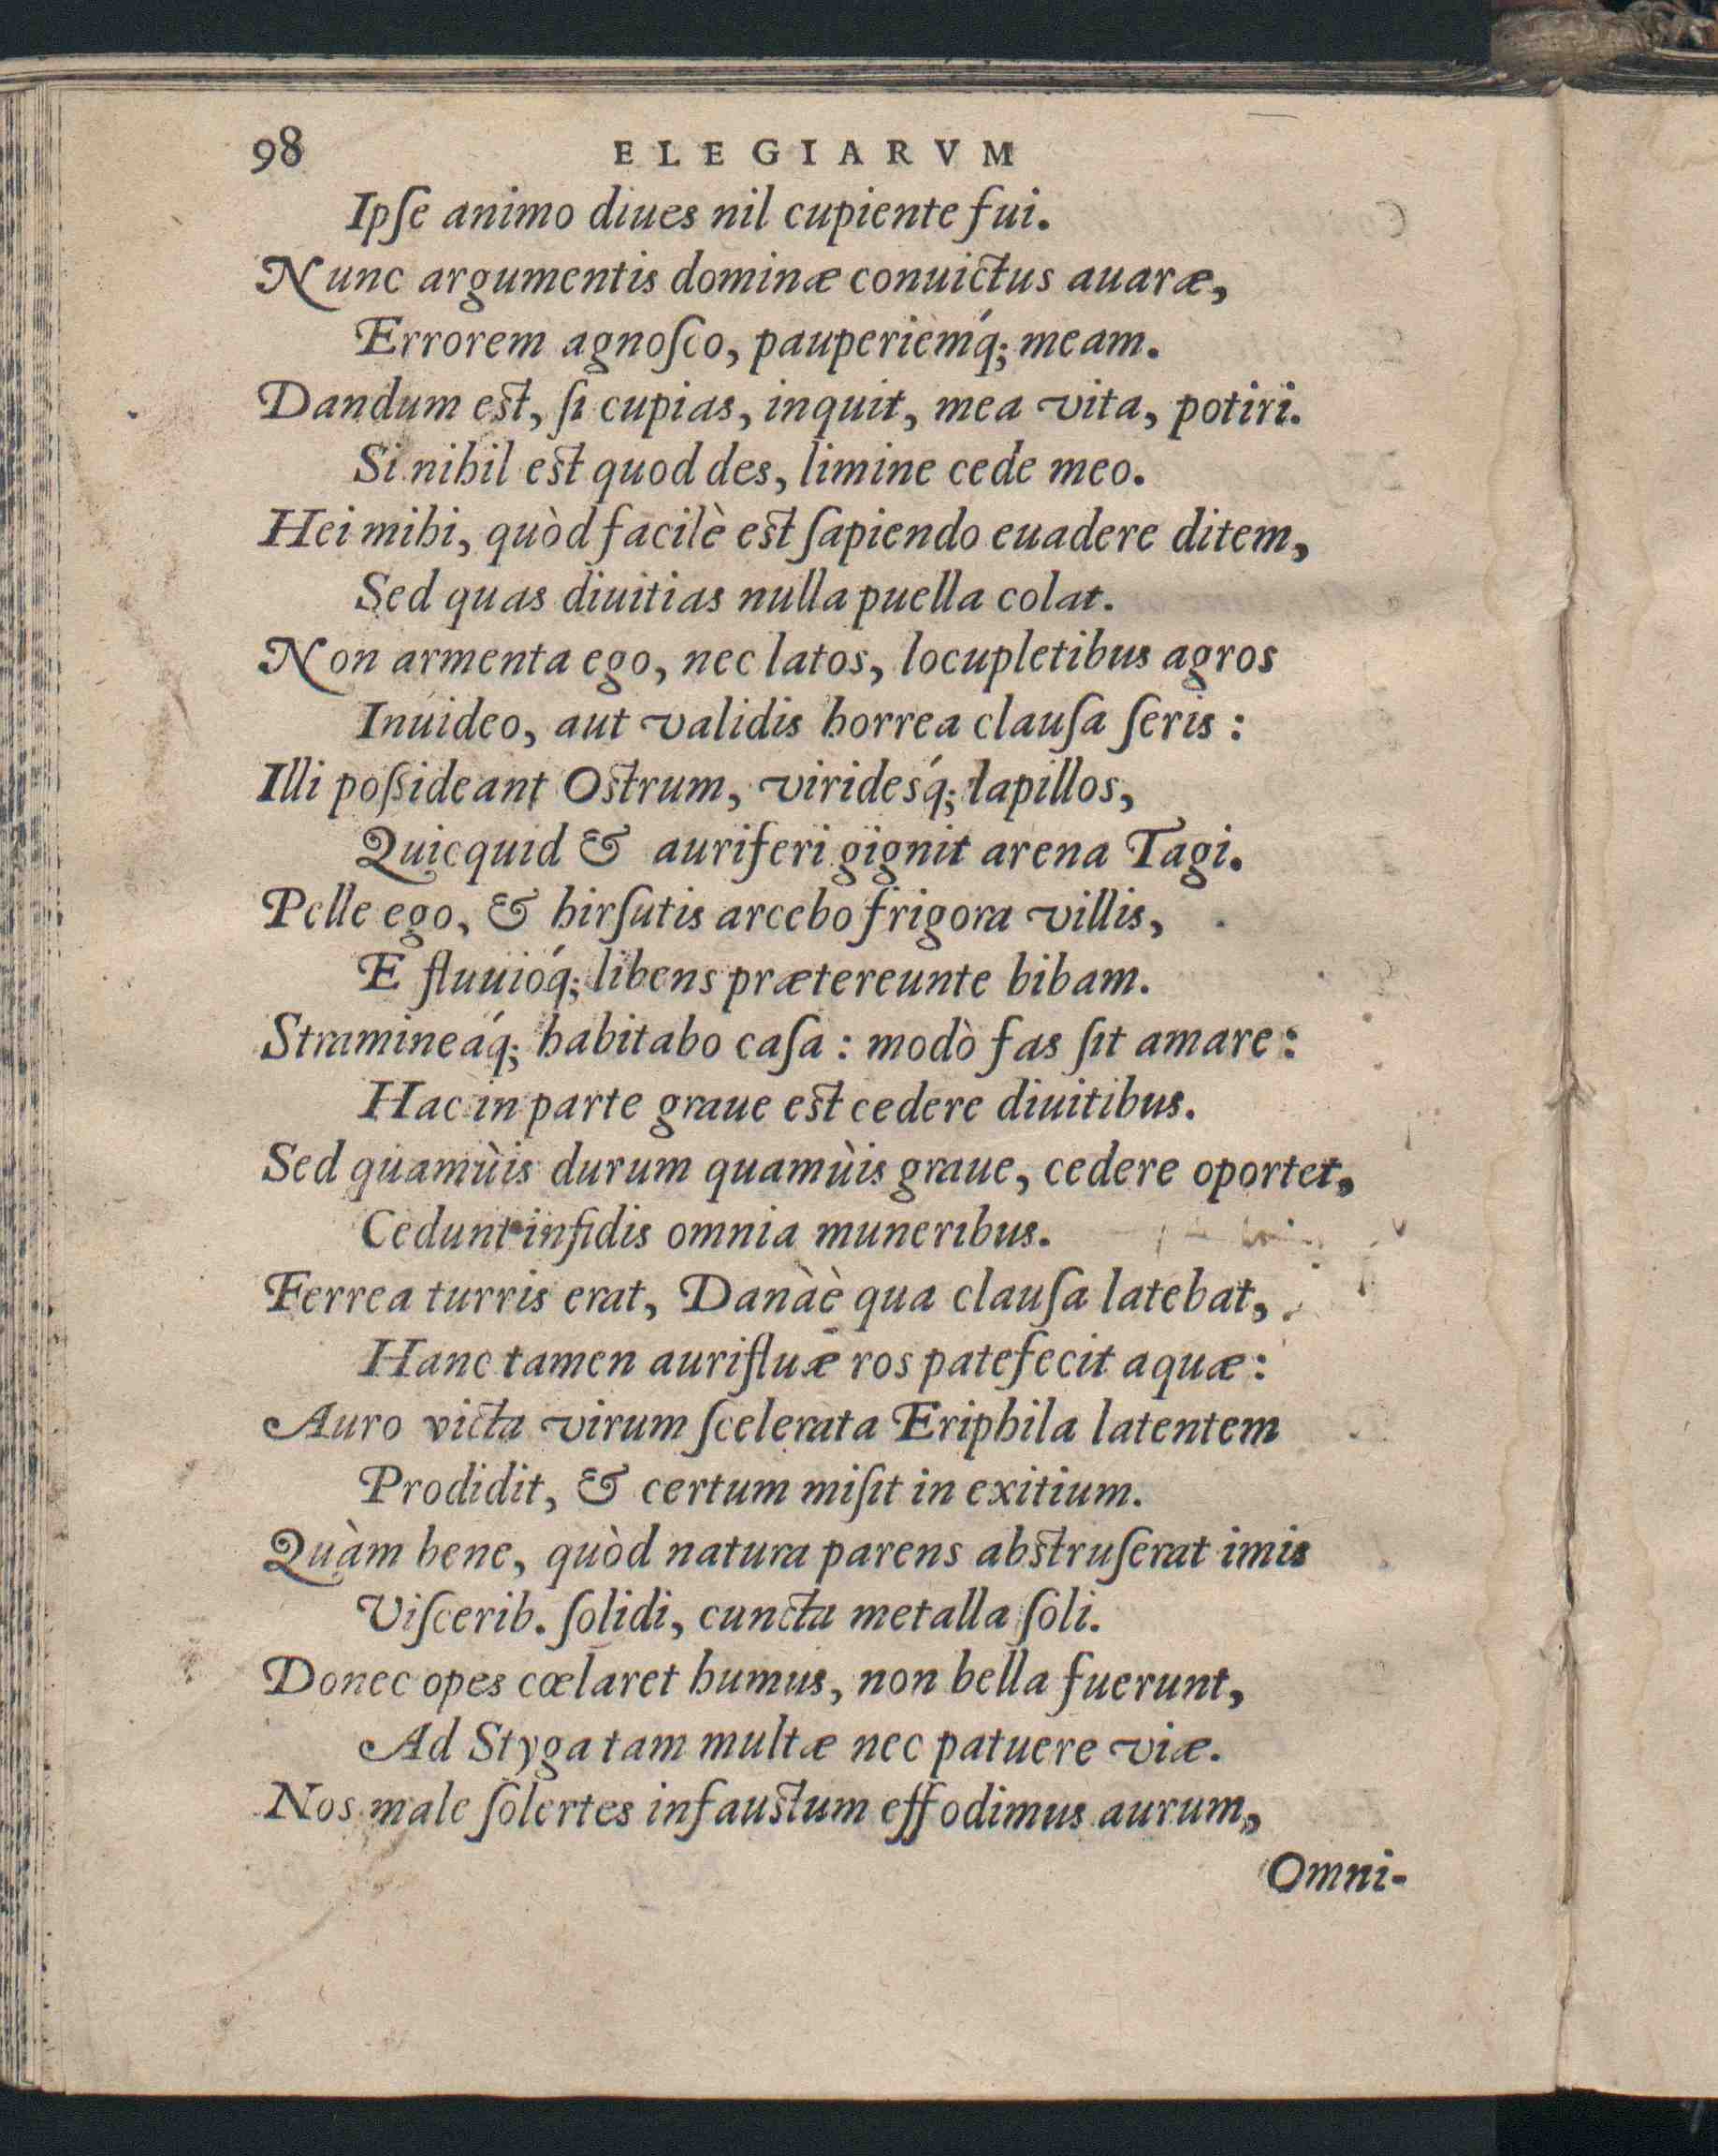 98 ELEGIARVM
Ipſe animo diues nil cupiente fui.
Nunc argumentis dominæ conuictus auaræ,
Errorem agnoſco, pauperiemq́; meam.
Dandum est, ſi cupias, inquit, mea vita, potiri.
Si nihil est quod des, limine cede meo.
Hei mihi, quòd facilè est ſapiendo euadere ditem,
Sed quas diuitias nulla puella colat.
Non armenta ego, nec latos, locupletibus agros
Inuideo, aut validis horrea clauſa ſeris :
Illi poßideant Ostrum, viridesq́; lapillos,
Quicquid & auriferi gignit arena Tagi.
Pelle ego, & hirſutis arcebo frigora villis,
E fluuioq́; libens prætereunte bibam.
Stramineaq́; habitabo caſa : modò fas ſit amare :
Hac in parte graue est cedere diuitibus.
Sed quamùis durum quamùis graue, cedere oportet,
Cedunt infidis omnia muneribus.
Ferrea turris erat, Danàè qua clauſa latebat,
Hanc tamen aurifluæ ros patefecit aquæ :
Auro victa virum ſcelerata Eriphila latentem
Prodidit, & certum miſit in exitium.
Quàm bene, quòd natura parens abstruſerat imis
Viſcerib. ſolidi, cuncta metalla ſoli.
Donec opes cœlaret humus, non bella fuerunt,
Ad Styga tam multæ nec patuere viæ.
Nos male ſolertes infaustum effodimus aurum,
Omni-